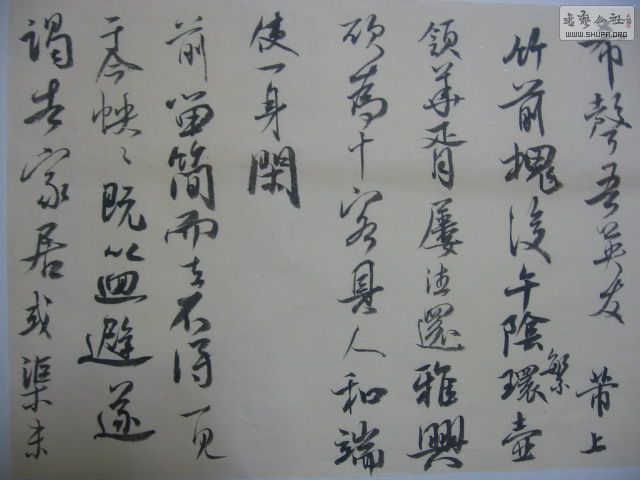 希聲吾英友 芾上
竹前槐後午陰繁環壺
領華胥屢往還雅興
欲為十客具人和端
使一身閑
前留簡而去不得一見
至今怏〻既以迴避遂
謁告家居或渠未
書藝公社
WWW.SHUFA.ORG